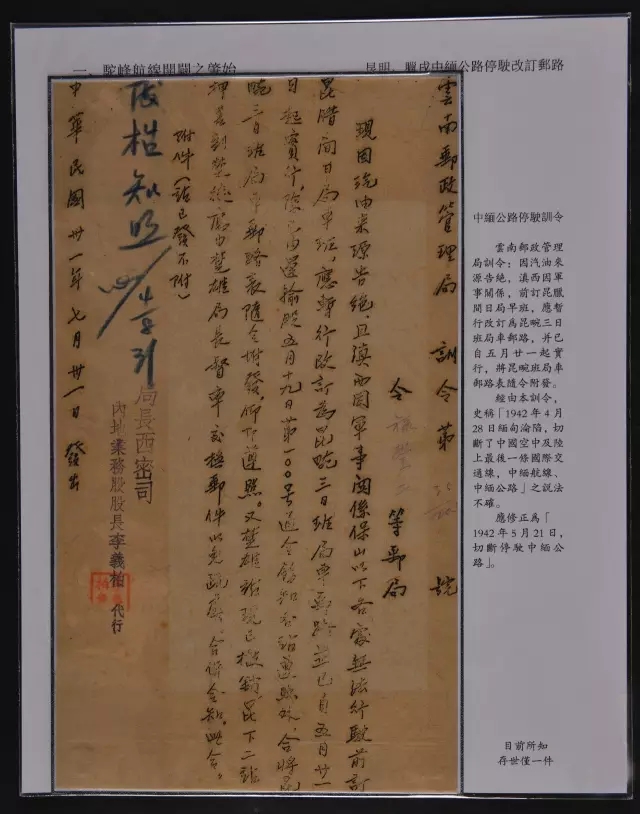 一、駝峰航線開闢之肇始
昆明、臘戌中緬公路停駛改訂郵路
雲南郵政管理局 訓令第 號
令 等郵局
現因汽油來源告絕，且滇西因軍事關係保山以下各處無法行駛前訂
昆臘間日局車班，應暫行改訂為昆畹三日班局車郵路並已自五月廿一
日起實行，除已由運輸股五月十九日第一〇〇号通令飭知各站遵照外，合將昆
畹三日班局車郵路表隨令附發，仰即遵照。又楚雄 現已撤銷，昆下二班
押差到楚 應由楚雄局長督率 郵件以免疏虞，合併令知。此令。
附件（ 已發不附）
知照
局長西密司
內地業務股股長李義柏 代行
中華民國卅一年七月卅一日發出
中緬公路停駛訓令
雲南郵政管理
局訓令：因汽油來
源告絕，滇西因軍
事關係，前訂昆臘
間日局早班，應暫
行改訂爲昆畹三日
班局車郵路，并已
自五月廿一起實
行，將昆畹班局車
郵路表隨令附發。
經由本訓令，
史稱「1942年4月
28日緬甸淪陷，切
斷了中國空中及陸
上最後一條國際交
通線，中緬航線、
中緬公路」之說法
不確。
應修正爲「
1942年5月21日，
切斷停駛中緬公
路」。
目前所知
存世僅一件